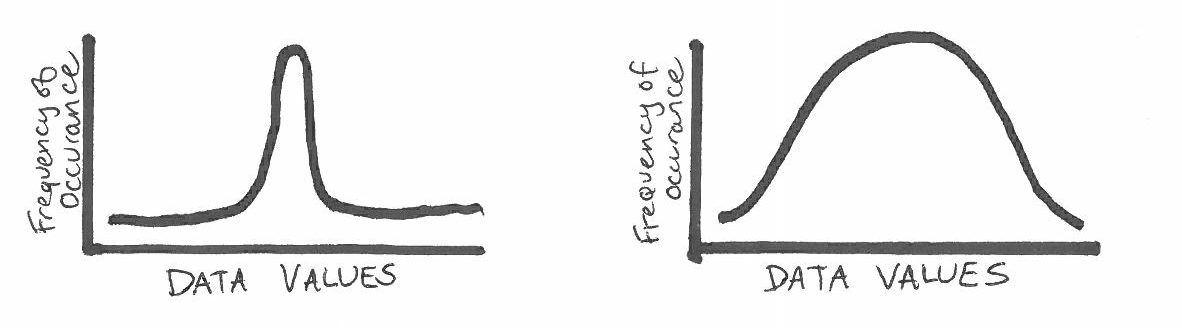 Frequency of
Occurance
DATA VALUES
Frequency of
Occurance
DATA VALUES